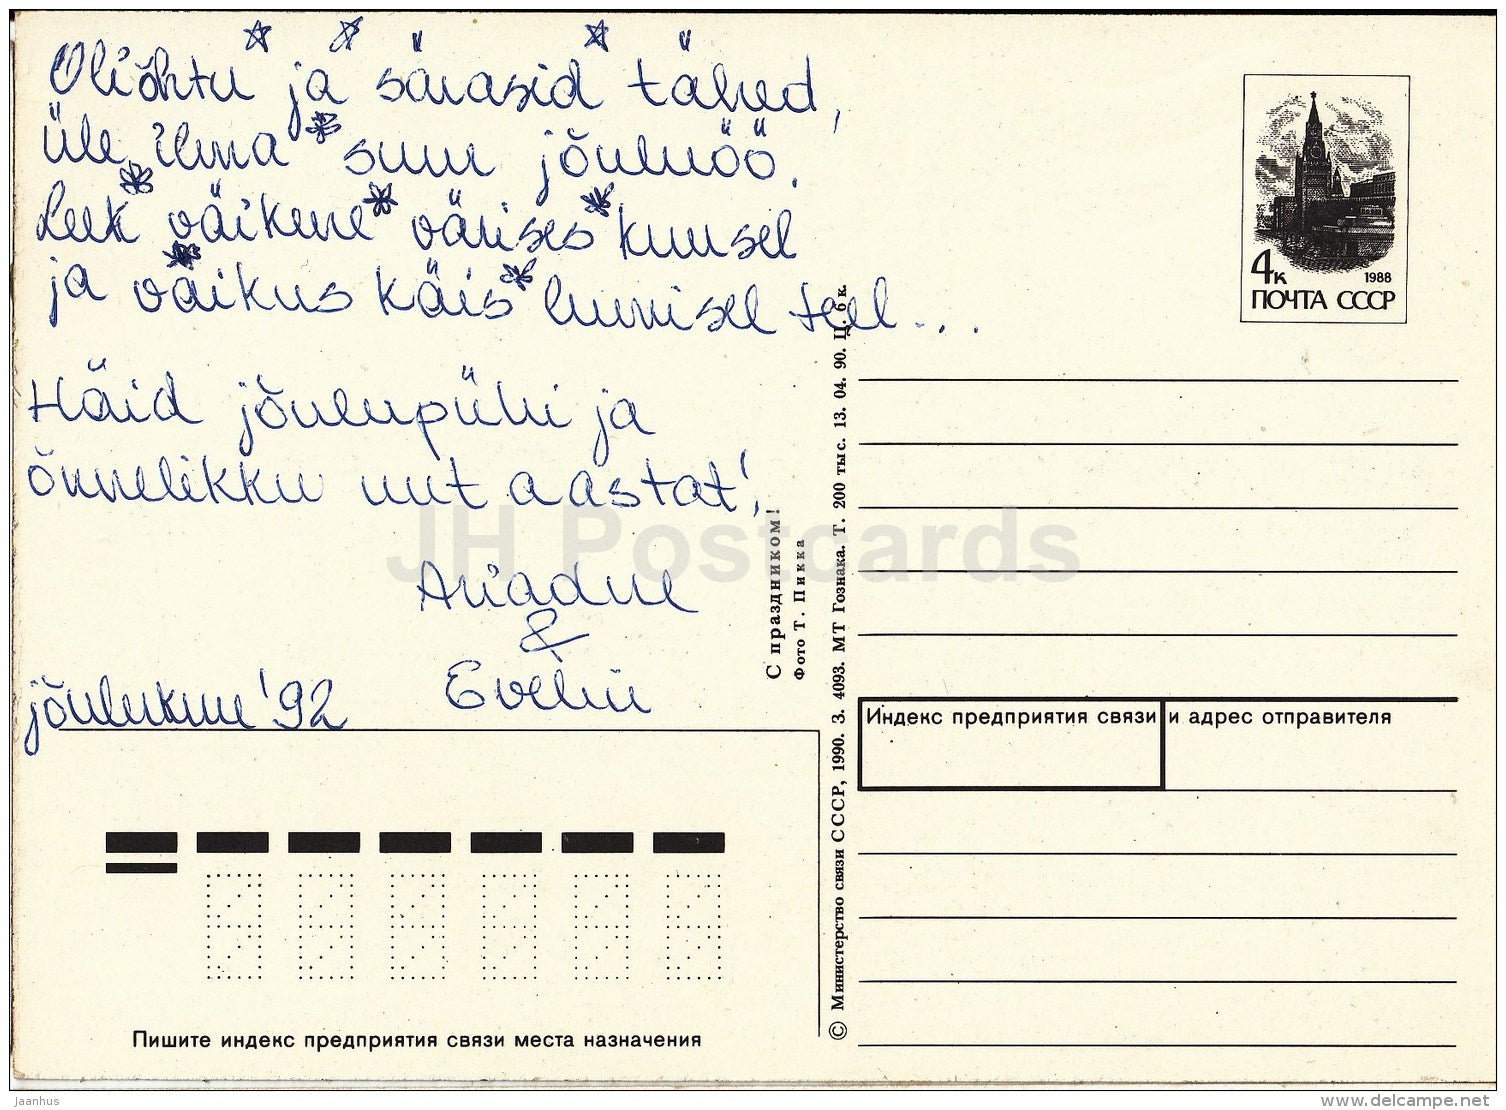 Oli õhtu ja särasid tähed,
üle ilma suur jõuluöö.
Leek väikene värises kuusel
ja väikus käis lumisel teel...
Häid jõulupühi ja
õnnelikku uut aastat!
Ariadne
&
Evelin
jõulukuu '92
4к 1988
ПОЧТА СССР
С праздником!
Фото Т. Пикка
© Министерство связи СССР, 1990. З. 4093. МТ Гознака. Т. 200 тыс. 13. 04. 90. Ц. 6 к.
Индекс предприятия связи и адрес отправителя
Пишите индекс предприятия связи места назначения
JH Postcards
Jaanhus
www.delcampe.net